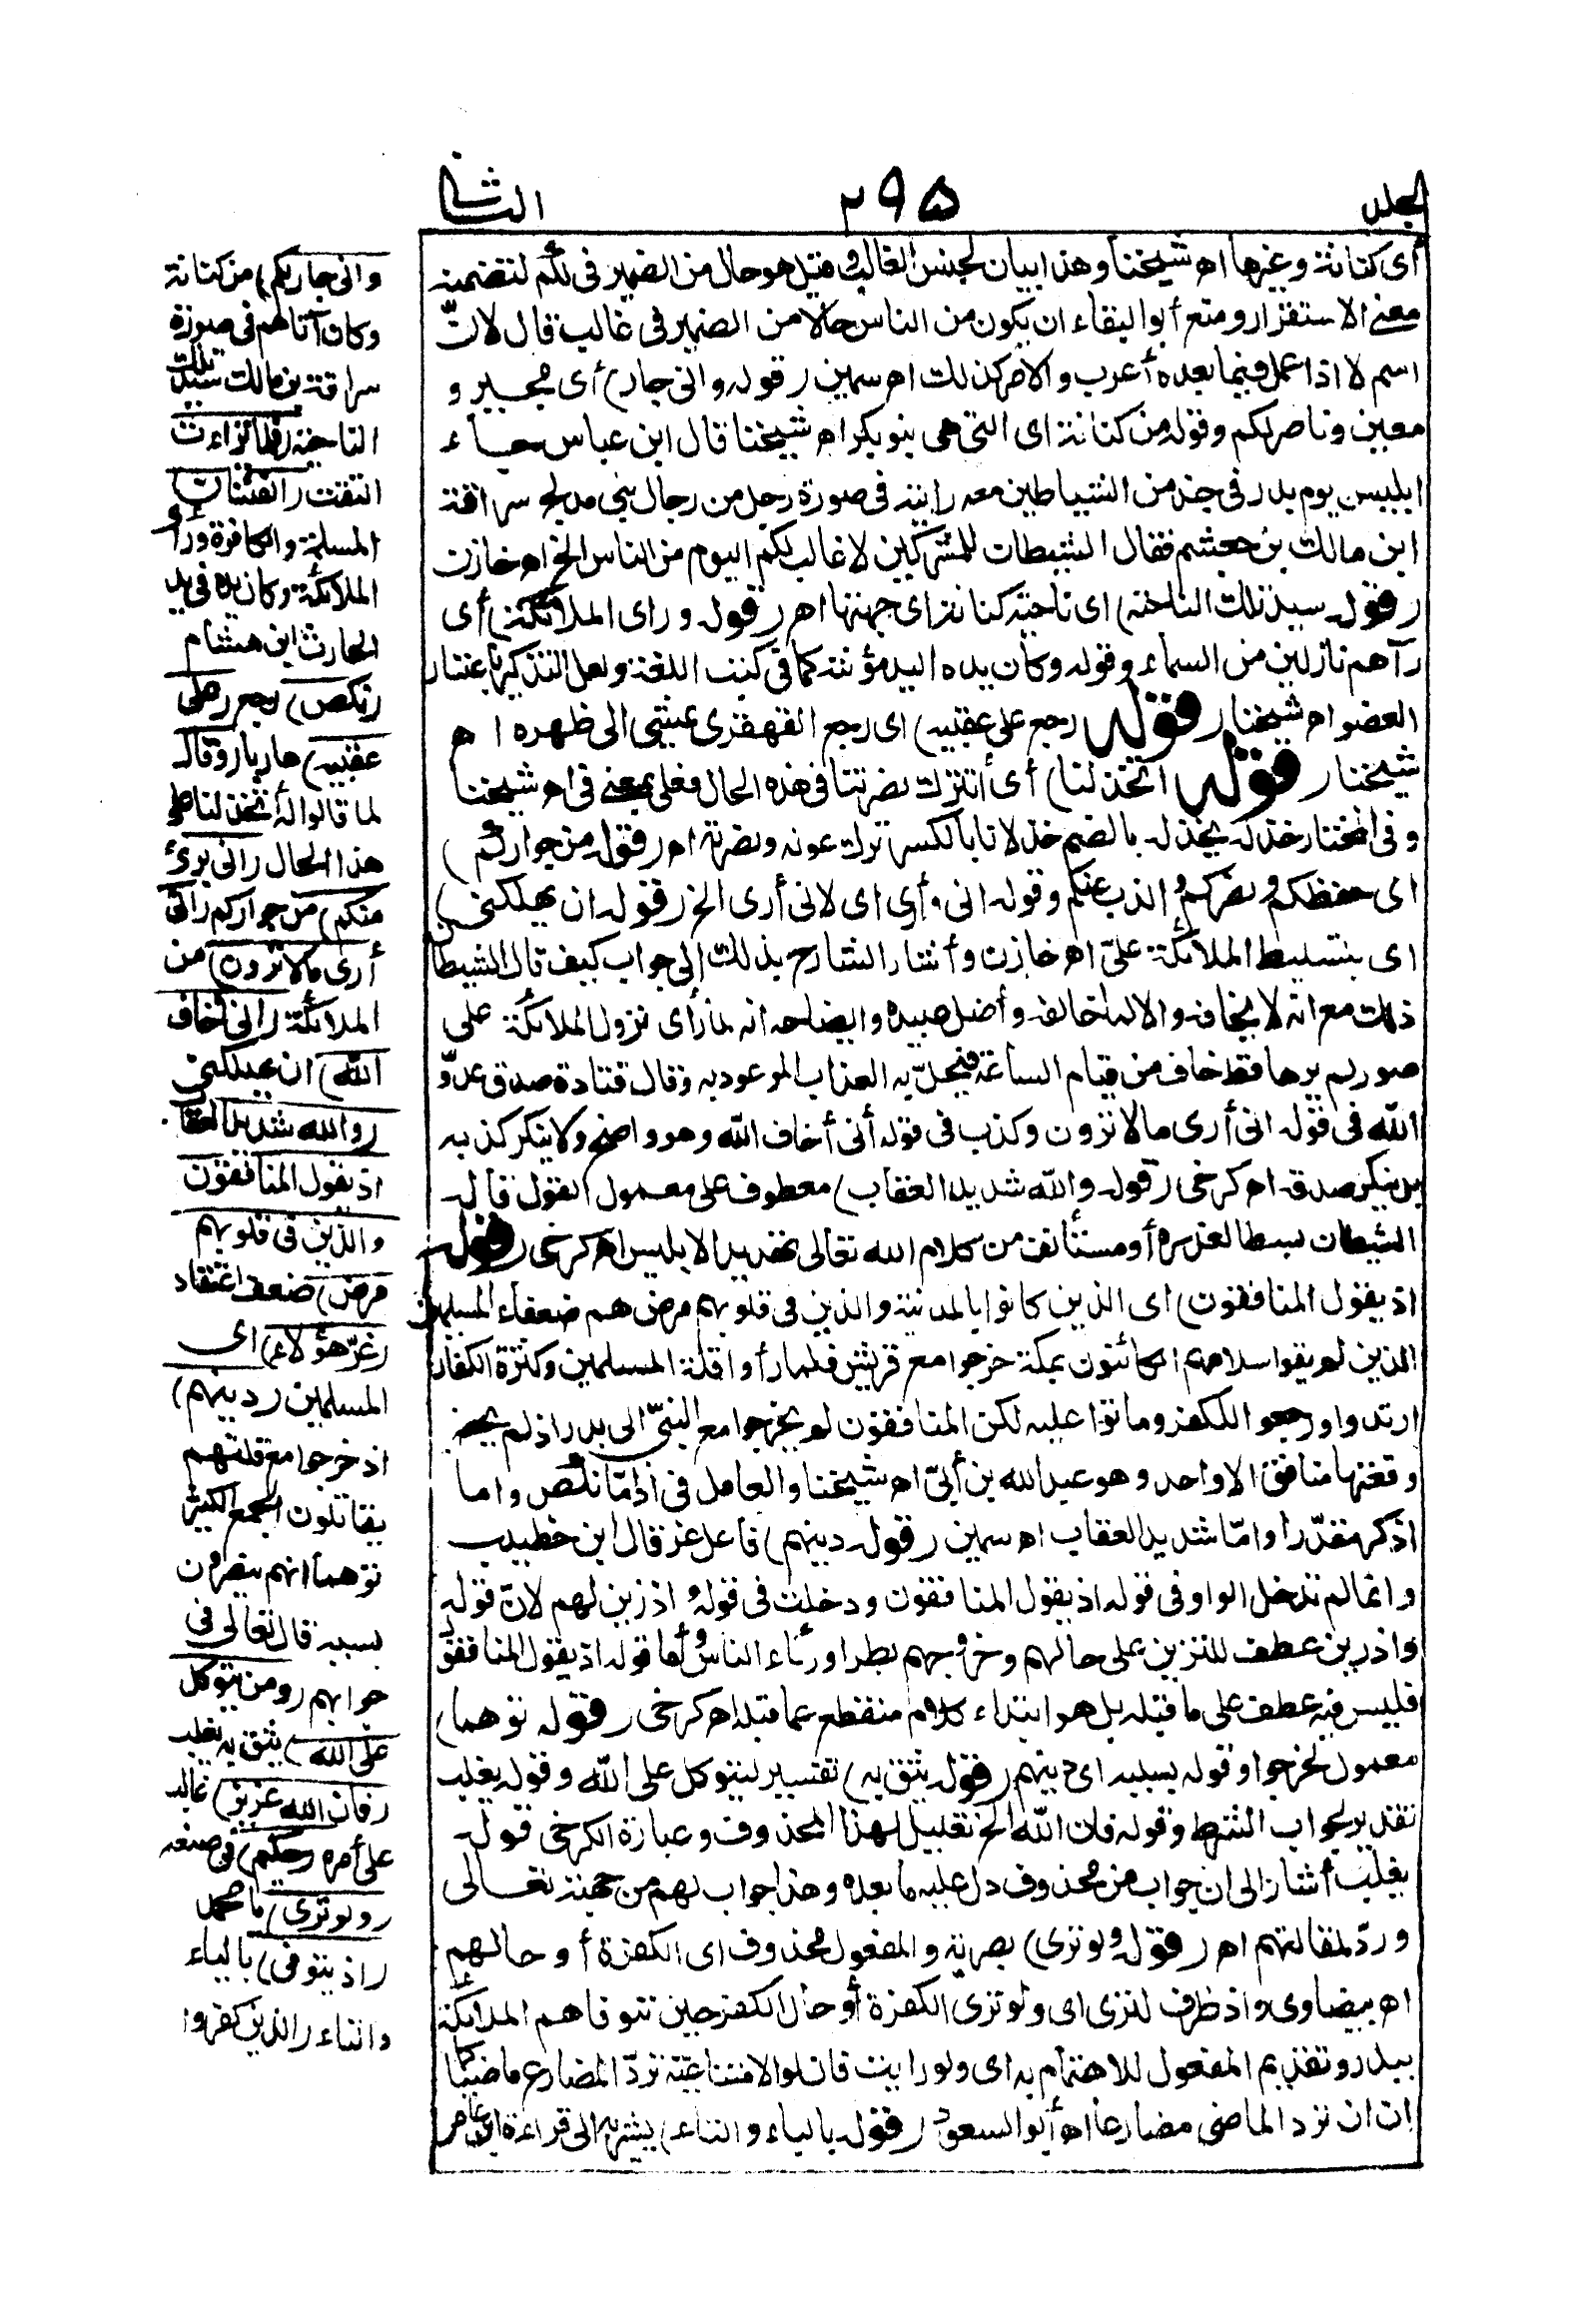 الجلد ٢٩٥ الثانى
أى كنانة وغيرها اه شيخنا وهذا بيان لجنس الغالب وقيل هو حال من الضمير فى لكم لتضمنه
معنى الاستقرار ومنع أبو البقاء ان يكون من الناس حالا من الضمير فى غالب قال لانّ
اسم لا اذا عمل فيما بعده أعرب والامر كذلك اه سمين (قوله وانى جار) أى مجير و
معين وناصر لكم وقوله من كنانة اى التى هى بنو بكر اه شيخنا قال ابن عباس جاء
ابليس يوم بدر فى جند من الشياطين معه رايته فى صورة رجل من رجال بنى مدلج سراقة
ابن مالك بن جعشم فقال الشيطان للمشركين لا غالب لكم اليوم من الناس الخ اه خازن
(قوله سيد تلك الناحية) اى ناحية كنانة اى جهتها اه (قوله وراى الملائكة) أى
رآهم نازلين من السماء وقوله وكان يده اليد مؤنثة كما فى كتب اللغة ولعل التذكير باعتبار
العضو اه شيخنا (قوله رجع على عقبيه) اى رجع القهقرى يمشى الى ظهره اه
شيخنا (قوله اتخذلنا) أى أتترك نصرتنا فى هذه الحال فعلى بمعنى فى اه شيخنا
وفى المختار خذله يخذله بالضم خذلانا بالكسر ترك عونه ونصرته اه (قوله من جواركم)
اى حفظكم ونصركم والذب عنكم وقوله انى أرى اى لانى أرى الخ (قوله ان يهلكنى)
اى بتسليط الملائكة علىّ اه خازن وأشار الشارح بذلك الى جواب كيف قال الشيطان
ذلك مع انه لا يخافه والا لما خالفه وأضل عبيده وايضاحه انه لما رأى نزول الملائكة على
صور لم يرها قط خاف من قيام الساعة فيحلّ به العذاب الموعود به وقال قتادة صدق عدوّ
الله فى قوله انى أرى مالا ترون وكذب فى قوله أنى أخاف الله وهو واضح ولا ينكر كذبه
بل ينكر صدقه اه كرخى (قوله والله شديد العقاب) معطوف على معمول القول قاله
الشيطان بسطا لعذره أو مستأنف من كلام الله تعالى تهديدا لابليس اه كرخى (قوله
اذ يقول المنافقون) اى الذين كانوا بالمدينة والذين فى قلوبهم مرض هم ضعفاء المسلمين
الذين لم يقو اسلامهم الكائنون بمكة خرجوا مع قريش فلما رأوا قلة المسلمين وكثرة الكفار
ارتدوا ورجعوا للكفر وماتوا عليه لكن المنافقون لم يخرجوا مع النبىّ الى بدر اذ لم يحضر
وقعتها منافق الا واحد وهو عبد الله بن أبىّ اه شيخنا والعامل فى اذ امّا نكص واما
اذكر مقدّرا وامّا شديد العقاب اه سمين (قوله دينهم) فاعل غر قال ابن خطيب
وانما لم تدخل الواو فى قوله اذ يقول المنافقون ودخلت فى قوله واذ زين لهم لانّ قوله
واذ زين عطف للتزيين على حالهم وخروجهم بطرا ورئاء الناس وأما قوله اذ يقول المنافقون
فليس فيه عطف على ما قبله بل هو ابتداء كلام منقطع عما قبله اه كرخى (قوله توهما)
معمول لخرجوا وقوله بسببه اى دينهم (قوله يثق به) تفسير ليتوكل على الله وقوله يغلب
تقدير لجواب الشرط وقوله فان الله الخ تعليل لهذا المحذوف وعبارة الكرخى قوله
يغلب أشار الى ان جواب من محذوف دل عليه ما بعده وهذا جواب لهم من جهته تعالى
وردّ لمقالتهم اه (قوله ولو ترى) بصرية والمفعول محذوف اى الكفرة أو حالهم
اه بيضاوى واذ ظرف لترى اى ولو ترى الكفرة أو حال الكفرة حين تتوفاهم الملائكة
ببدر وتقديم المفعول للاهتمام به اى ولو رايت فان لو الامتناعية تردّ المضارع ماضيا كما
ان ان ترد الماضى مضارعا اه أبو السعود (قوله بالياء والتاء) يشير به الى قراءة ابن عامر
وانى جار لكم) من كنانة
وكان أتاهم فى صورة
سراقة بن مالك سيد تلك
الناحية (فلما تراءت)
التقت (الفئتان)
المسلمة والكافرة ورأى
الملائكة وكان يده فى يد
الحارث ابن هشام
(نكص) رجع (على
عقبيه) هاربا (وقال)
لما قالوا له أتخذلنا على
هذا الحال (انى برئ
منكم) من جواركم (انى
أرى مالا ترون) من
الملائكة (انى أخاف
الله) ان يهلكنى
(والله شديد العقاب
اذ يقول المنافقون
والذين فى قلوبهم
مرض) ضعف اعتقاد
(غرّ هؤلاء) اى
المسلمين (دينهم)
اذ خرجوا مع قلتهم
يقاتلون الجمع الكثير
توهما انهم ينصرون
بسببه قال تعالى فى
جوابهم (ومن يتوكل
على الله) يثق به يغلب
(فان الله عزيز) غالب
على أمره (حكيم) فى صنعه
(ولو ترى) يا محمد
(اذ يتوفى) بالياء
والتاء (الذين كفروا